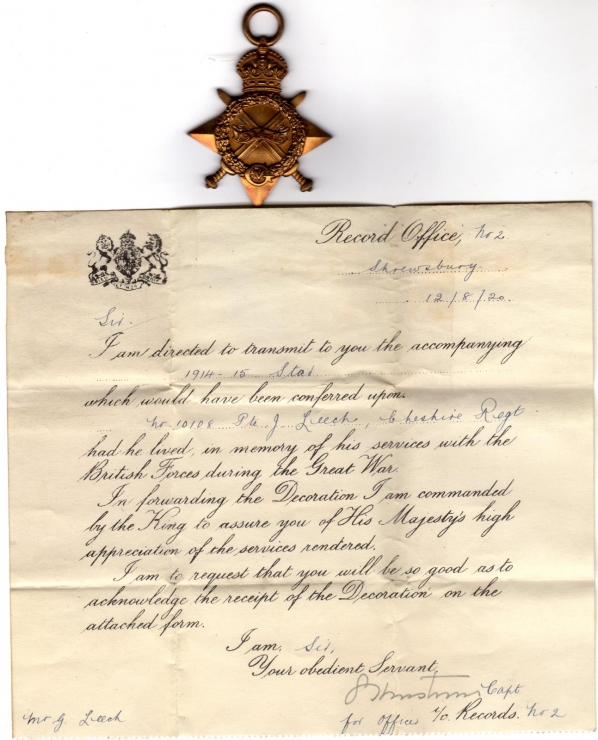 Record Office, No 2
Shrewsbury
12/8/20.
Sir.
I am directed to transmit to you the accompanying
1914-15 Star
which would have been conferred upon.
No 10108 Pte J Leech, Cheshire Regt.
had he lived, in memory of his services with the
British Forces during the Great War.
In forwarding the Decoration I am commanded
by the King to assure you of His Majesty's high
appreciation of the services rendered.
I am to request that you will be so good as to
acknowledge the receipt of the Decoration on the
attached form.
I am, Sir,
Your obedient Servant,
Capt
for Officer i/c Records. No 2
Mr G Leech